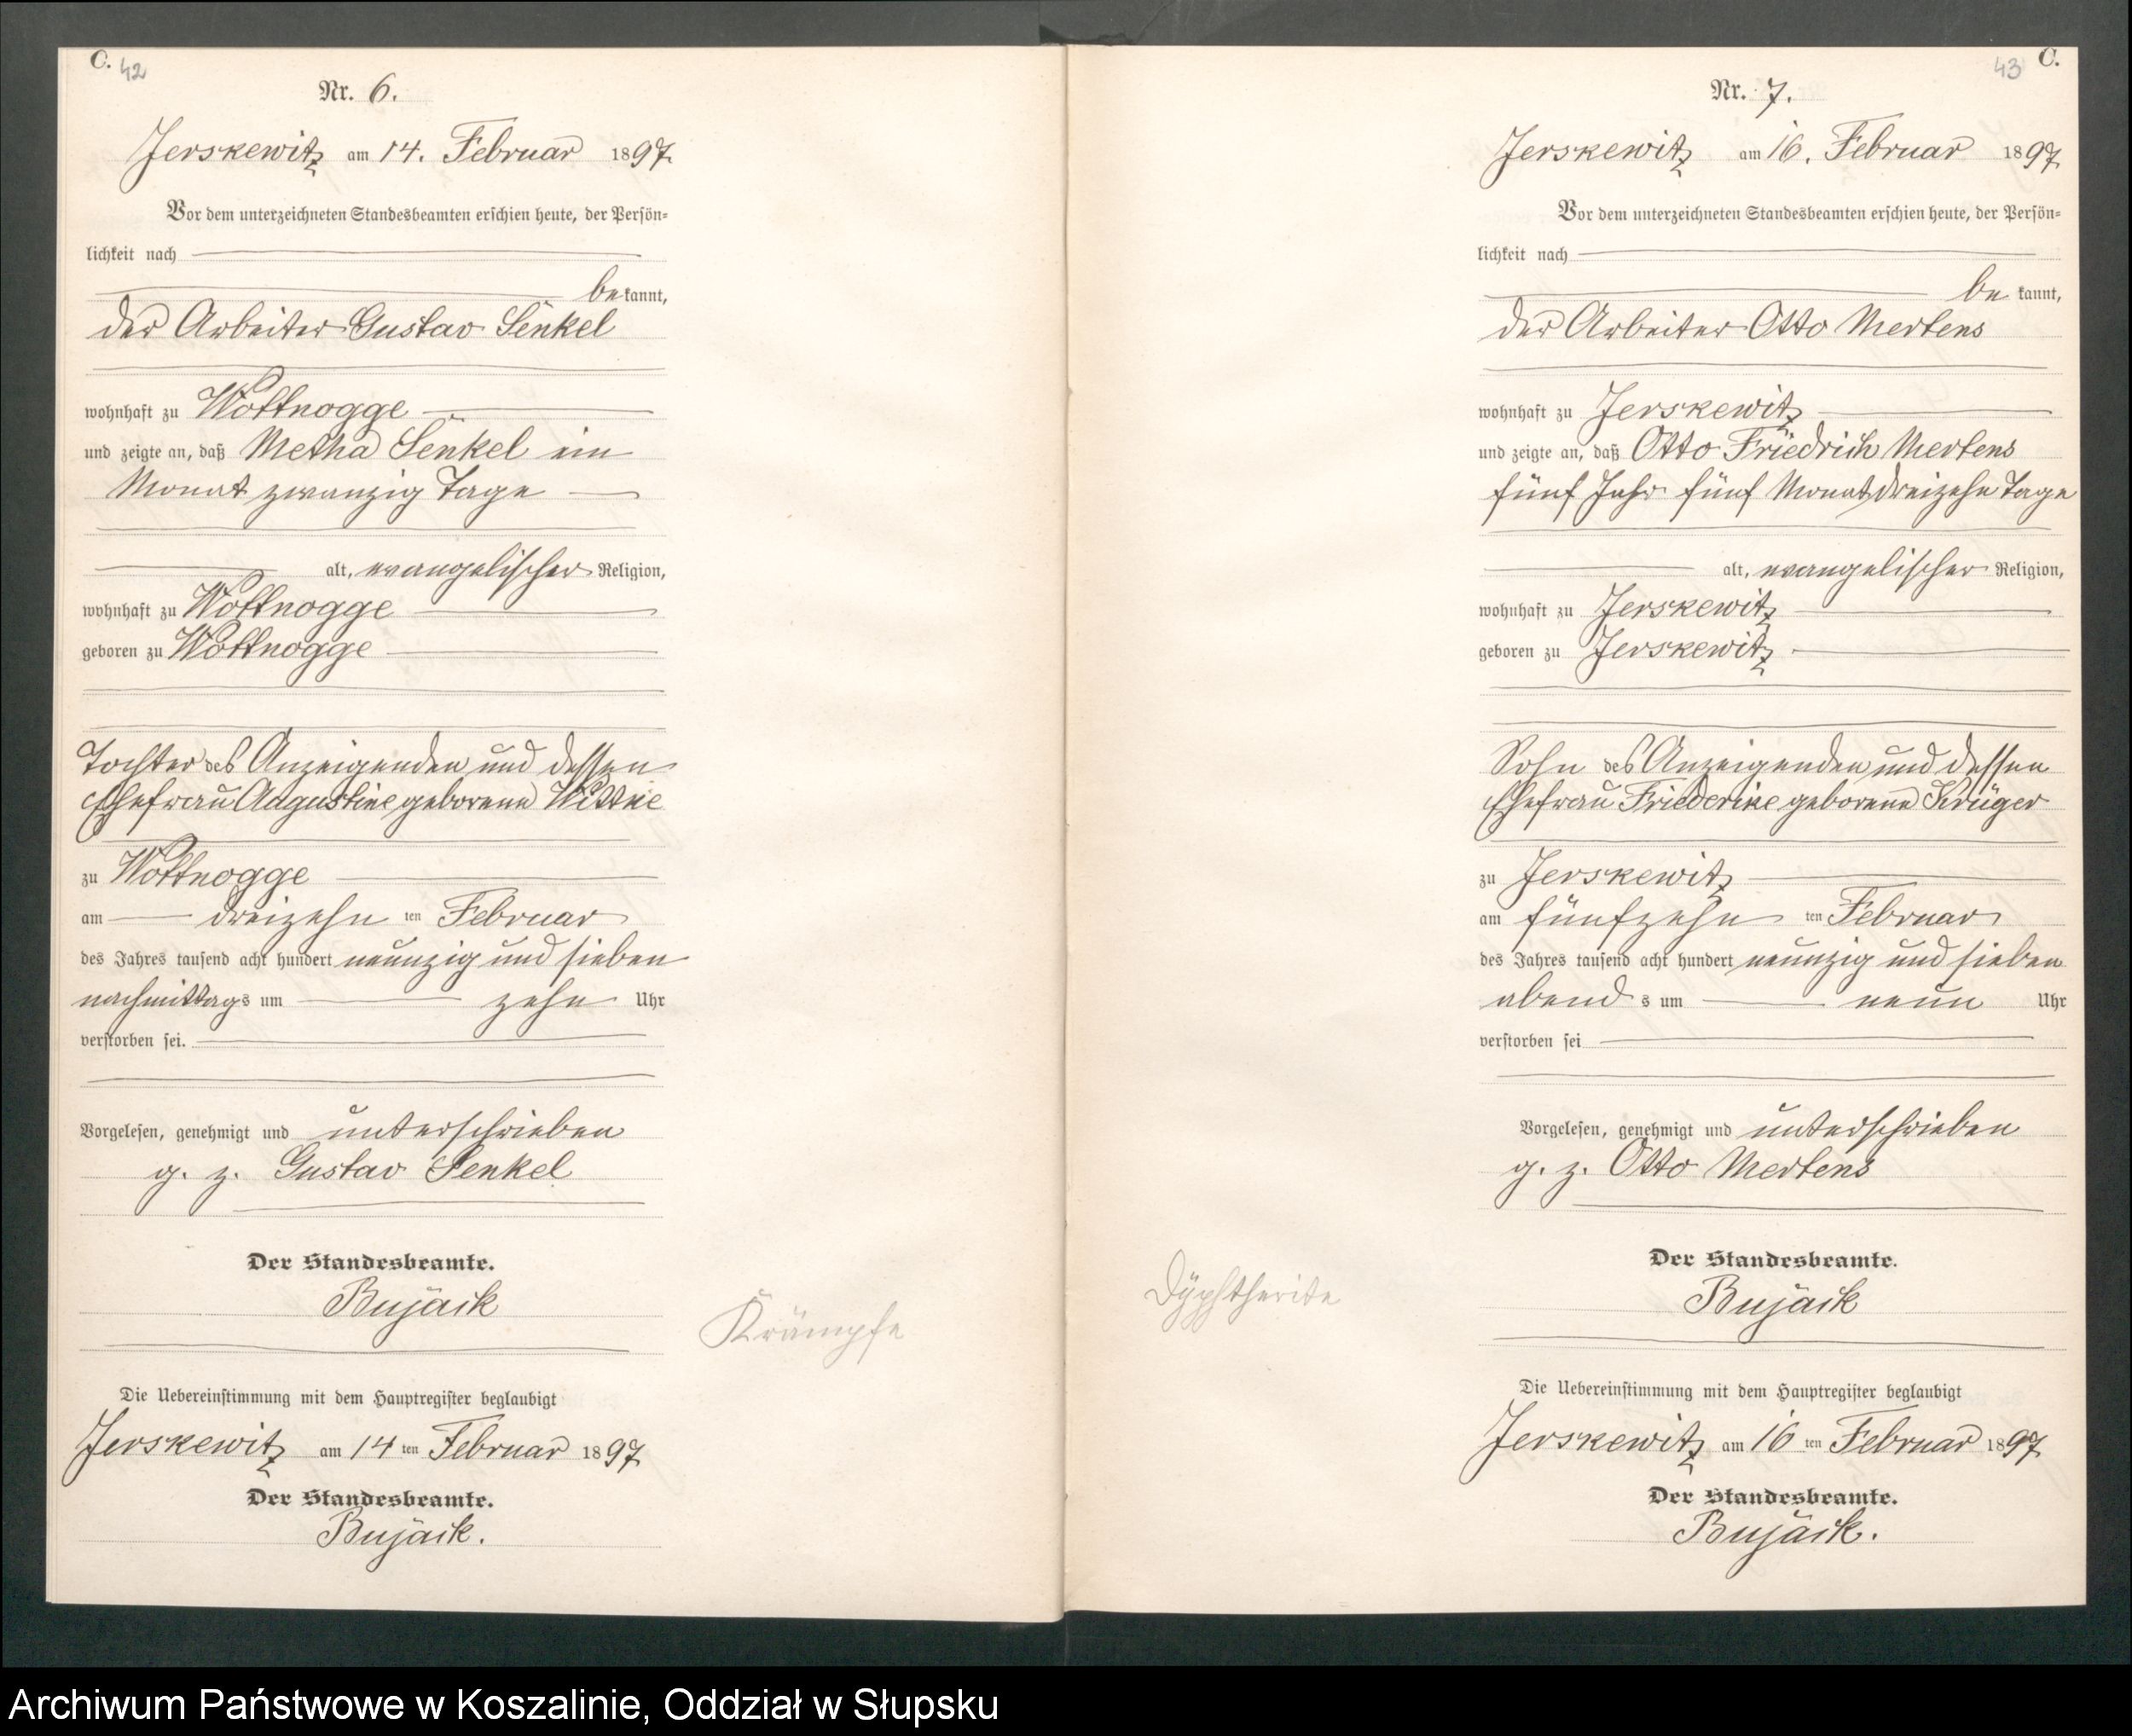 C. 42
Nr. 6.
Jerskewitz am 14. Februar 1897.
Vor dem unterzeichneten Standesbeamten erschien heute, der Persön-
lichkeit nach
bekannt,
der Arbeiter Gustav Senkel
wohnhaft zu Wottnogge
und zeigte an, daß Metha Senkel ein
Monat zwanzig Tage
alt, evangelischer Religion,
wohnhaft zu Wottnogge
geboren zu Wottnogge
Tochter des Anzeigenden und dessen
Ehefrau Augustine geborene Wittke
zu Wottnogge
am dreizehn ten Februar
des Jahres tausend acht hundert neunzig und sieben
nachmittags um zehn Uhr
verstorben sei.
Vorgelesen, genehmigt und unterschrieben
g. z. Gustav Senkel
Der Standesbeamte.
Bujack
Krämpfe
Die Uebereinstimmung mit dem Hauptregister beglaubigt
Jerskewitz am 14 ten Februar 1897.
Der Standesbeamte.
Bujack.
43 C.
Nr. 7.
Jerskewitz am 16. Februar 1897.
Vor dem unterzeichneten Standesbeamten erschien heute, der Persön-
lichkeit nach
bekannt,
der Arbeiter Otto Mertens
wohnhaft zu Jerskewitz
und zeigte an, daß Otto Friedrich Mertens
fünf Jahr fünf Monat dreizehn Tage
alt, evangelischer Religion,
wohnhaft zu Jerskewitz
geboren zu Jerskewitz
Sohn des Anzeigenden und dessen
Ehefrau Friederike geborene Krüger
zu Jerskewitz
am fünfzehn ten Februar
des Jahres tausend acht hundert neunzig und sieben
abends um neun Uhr
verstorben sei
Vorgelesen, genehmigt und unterschrieben
g. z. Otto Mertens
Der Standesbeamte.
Bujack
Dyphtherite
Die Uebereinstimmung mit dem Hauptregister beglaubigt
Jerskewitz am 16 ten Februar 1897.
Der Standesbeamte.
Bujack.
Archiwum Państwowe w Koszalinie, Oddział w Słupsku